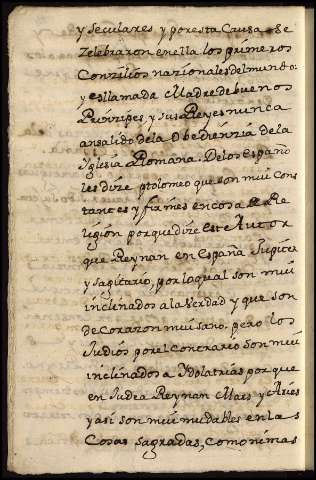 y seculares, y por esta Causa se
Zelebraron en ella los primeros
Conzilios nazionales del mundo:
y es llamada Madre de buenos
Prinzipes, y sus Reyes nunca
an salido de la Obedienzia de la
Iglesia Romana. De los españo
les dize ptolomeo que son mui cons
tantes y firmes en cosas de Re
ligión porque dize este Autor
que Reynan en España Jupiter
y sagitario, por lo qual son mui
inclinados a la Verdad y que son
de corazon mui sano. pero los
Judios por el contrario son mui
inclinados a Ydolatrias por que
en Judea Reynan Mars y Aries
y asi son mui mudables en las
Cosas sagradas, como ni mas